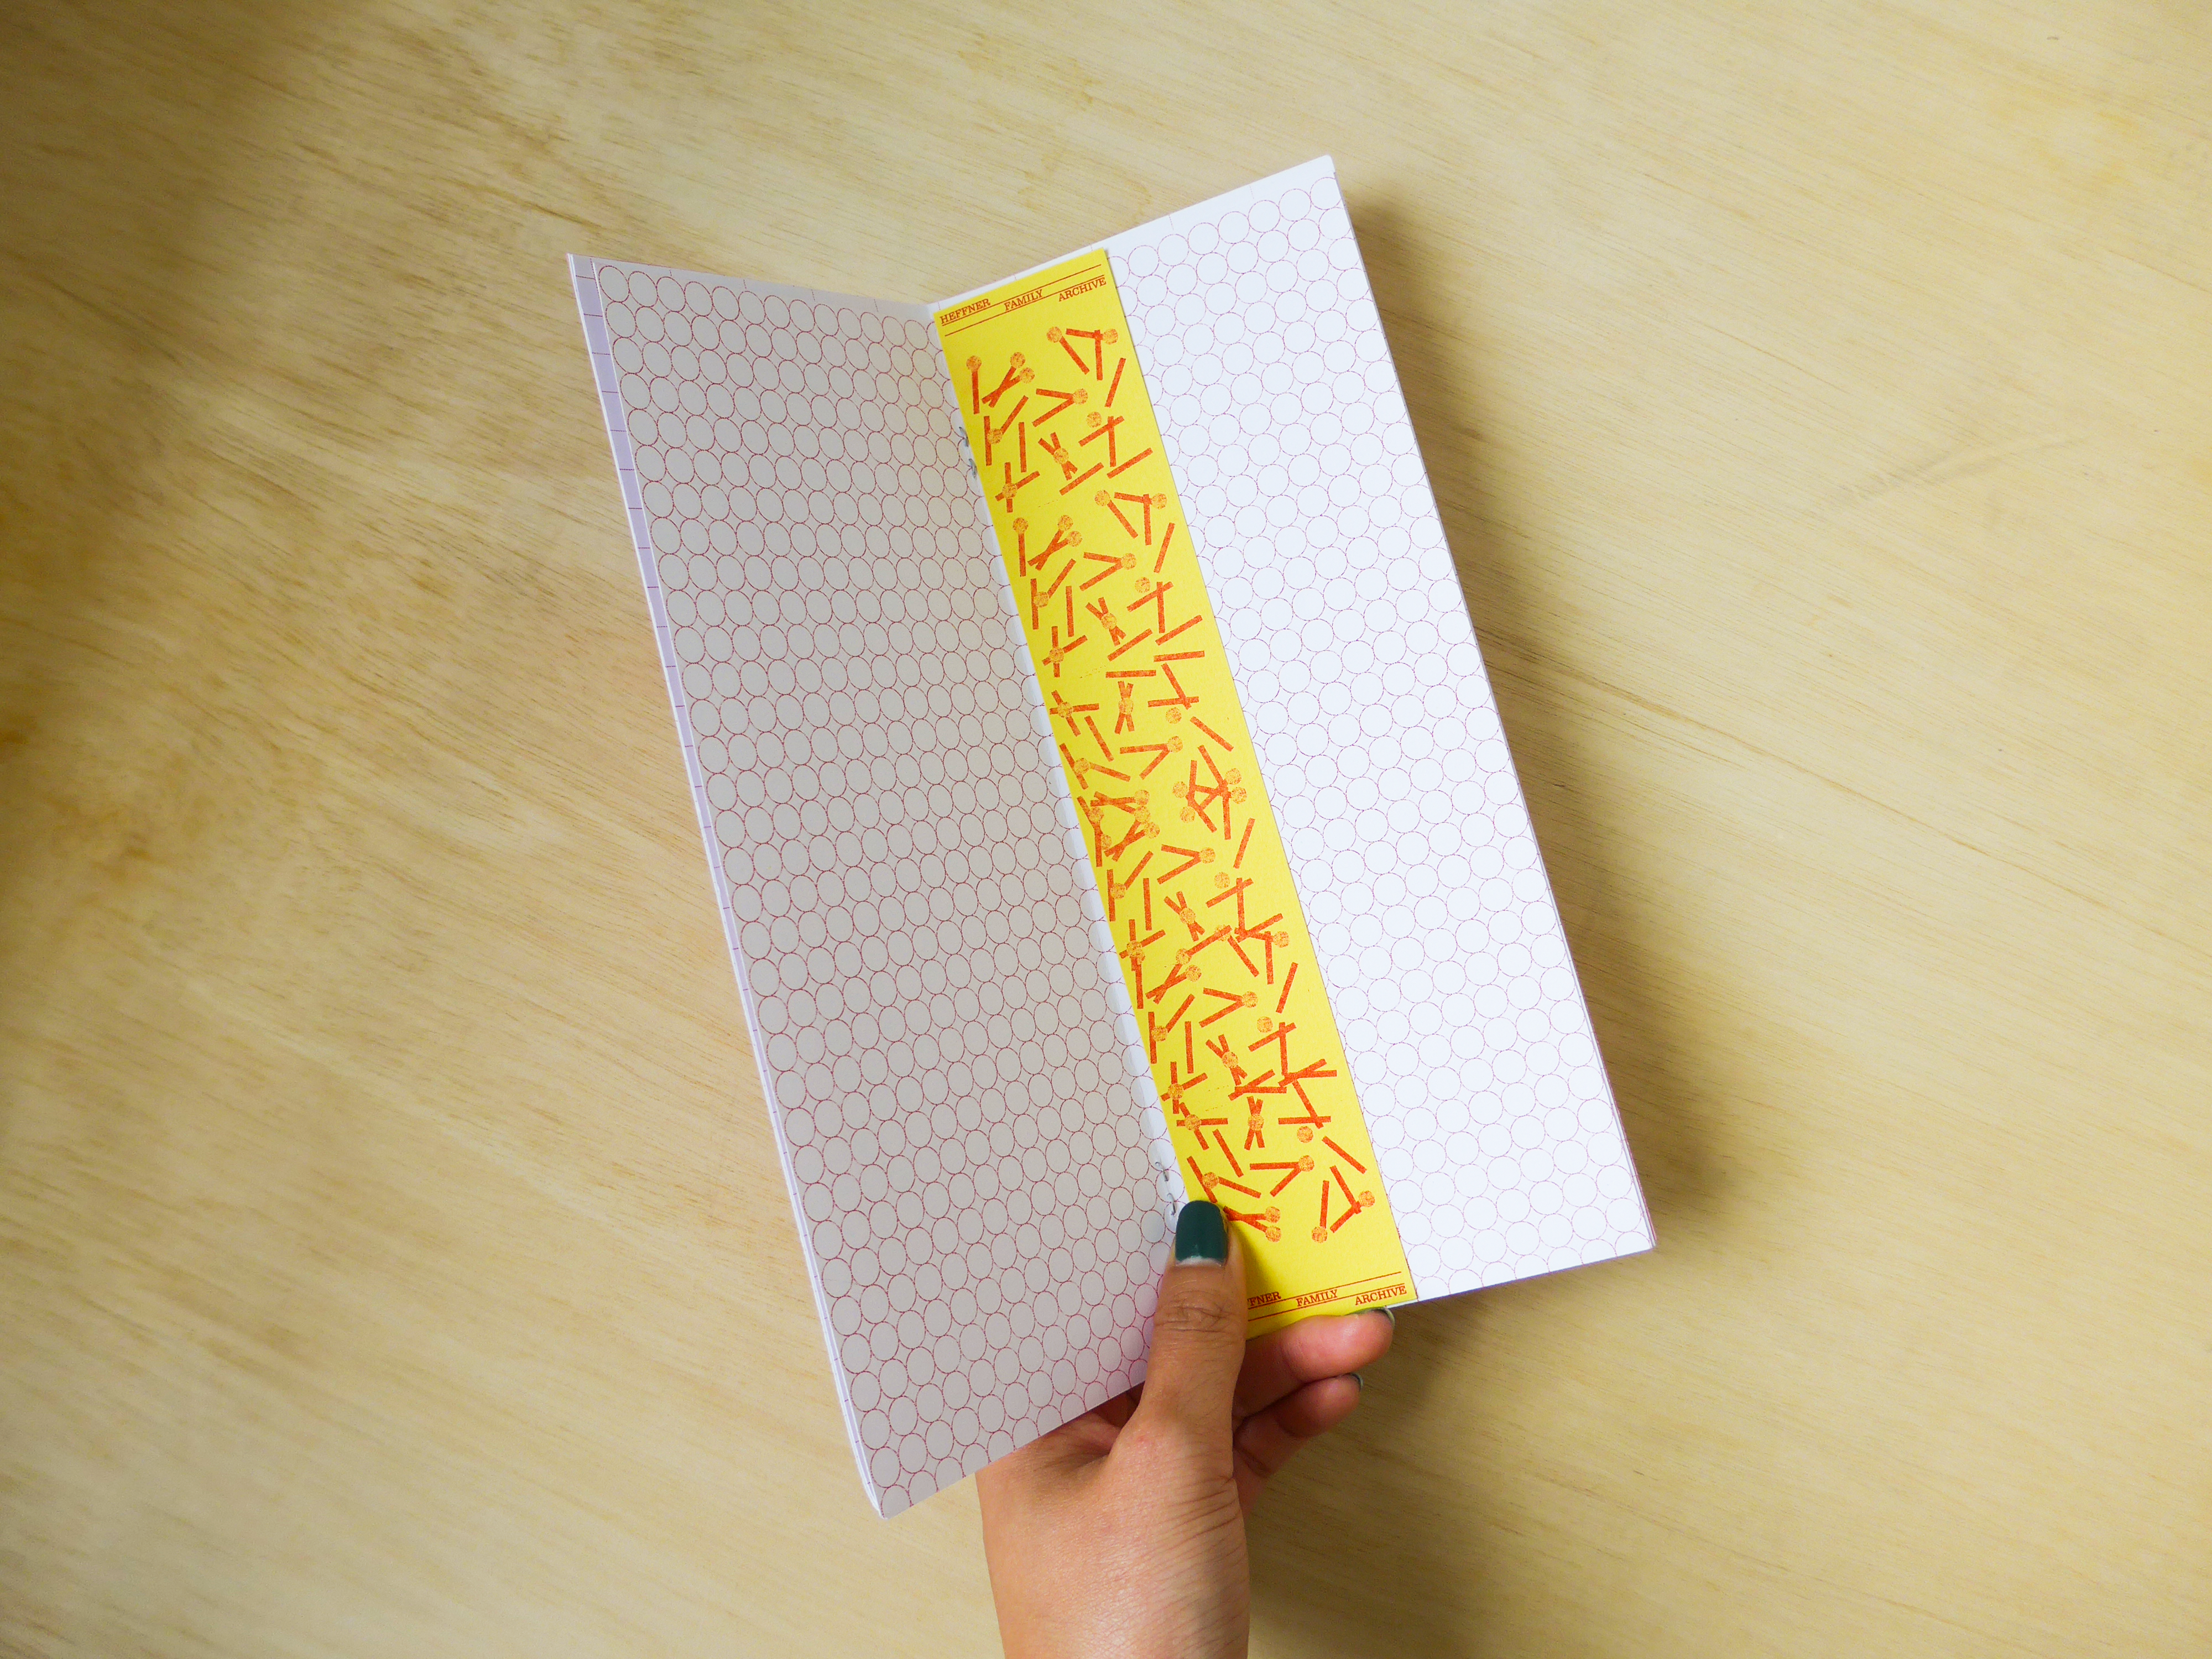 HEFFNER FAMILY ARCHIVE
FFNER FAMILY ARCHIVE